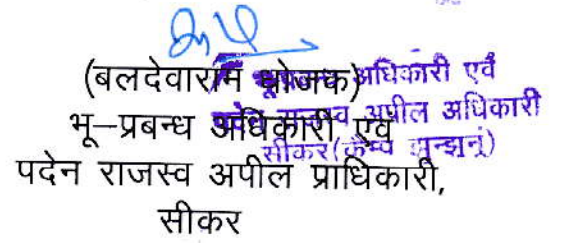 (बलदेवाराम धोजक)
भू–प्रबन्ध अधिकारी एवं
पदेन राजस्व अपील प्राधिकारी,
सीकर
भूप्रबन्ध अधिकारी एवं
पदेन राजस्व अपील अधिकारी
सीकर(कैम्प झुन्झुनूं)